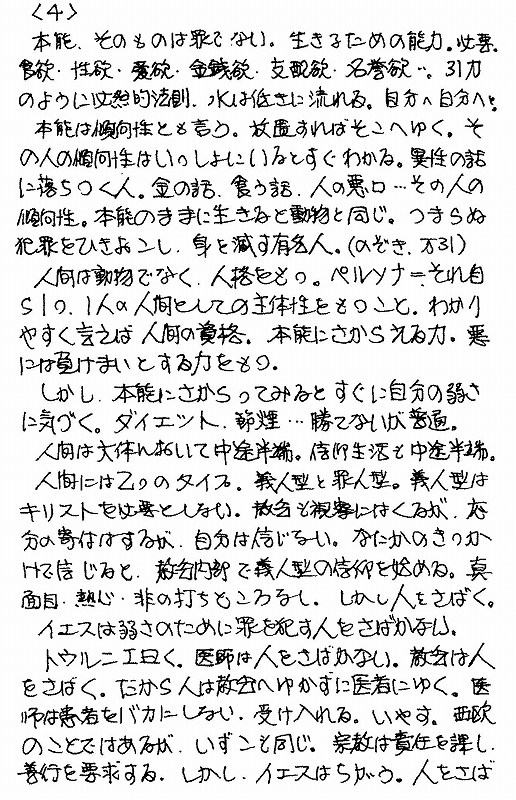 〈4〉
本能、そのものは罪でない。生きるための能力。必要。
食欲・性欲・愛欲・金銭欲・支配欲・名誉欲…。引力
のように必然的法則、水は低きに流れる。自分へ自分へと。
本能は傾向性とも言う。放置すればそこへゆく。そ
の人の傾向性はいっしょにいるとすぐわかる。異性の話
に落ちつく人。金の話、食う話、人の悪口…その人の
傾向性。本能のままに生きると動物と同じ。つまらぬ
犯罪をひきおこし、身を滅す有名人。(のぞき、万引)
人間は動物でなく、人格をもつ。ペルソナ=それ自
ら1つ、1人の人間としての主体性をもつこと。わかり
やすく言えば人間の資格。本能にさからえる力。悪
には負けまいとする力をもつ。
しかし、本能にさからってみるとすぐに自分の弱さ
に気づく。ダイエット、節煙…勝てないが普通。
人間は大体において中途半端。信仰生活も中途半端。
人間には2つのタイプ。義人型と罪人型。義人型は
キリストを必要としない。教会も視察にはくるが、応
分の寄付はするが、自分は信じない。なにかのきっか
けで信じると、教会内部で義人型の信仰を始める。真
面目・熱心・非の打ちどころなし。しかし人をさばく。
イエスは弱さのために罪を犯す人をさばかない。
トウルニエ曰く。医師は人をさばかない。教会は人
をさばく。だから人は教会へゆかずに医者にゆく。医
師は患者をバカにしない、受け入れる。いやす。西欧
のことではあるが、いずこも同じ。宗教は責任を課し、
善行を要求する。しかし、イエスはちがう。人をさば